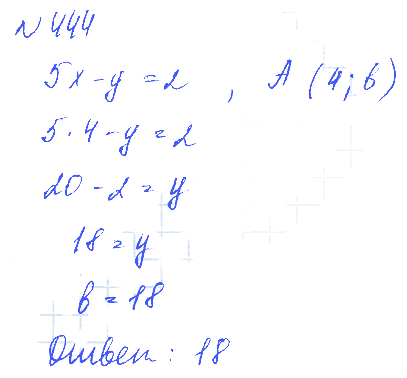 №444
5x-y=2, A(4;b)
5·4-y=2
20-2=y
18=y
b=18
Ответ: 18